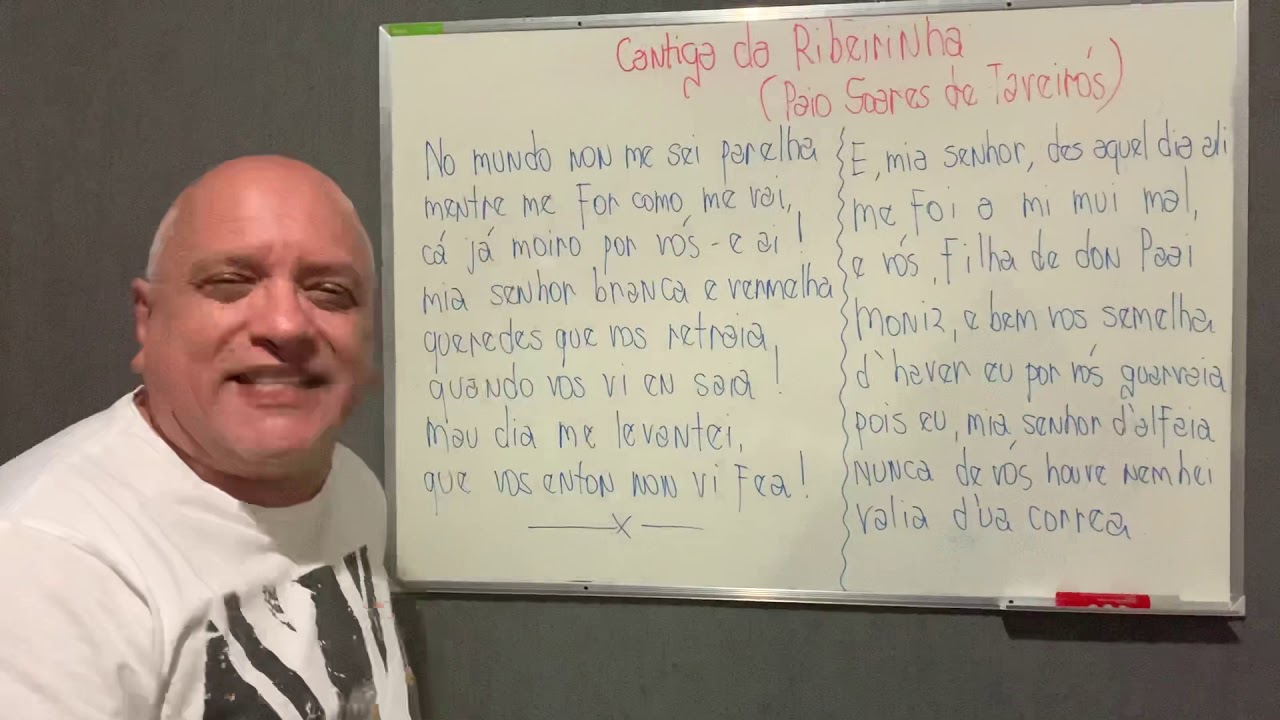 Cantiga da Ribeirinha
(Paio Soares de Taveirós)
No mundo non me sei parelha
mentre me for como me vai,
cá já moiro por vós - e ai!
mia senhor branca e vermelha
queredes que vos retraia
quando vos vi en saia!
mau dia me levantei,
que vos enton non vi fea!
E, mia senhor, des aquel dia ali
me foi a mi mui mal,
e vós, filha de don Paai
Moniz, e bem vos semelha
d'haver eu por vós guarvaia
pois eu, mia senhor d'alfaia
nunca de vós houve nem hei
valia d'ua correa